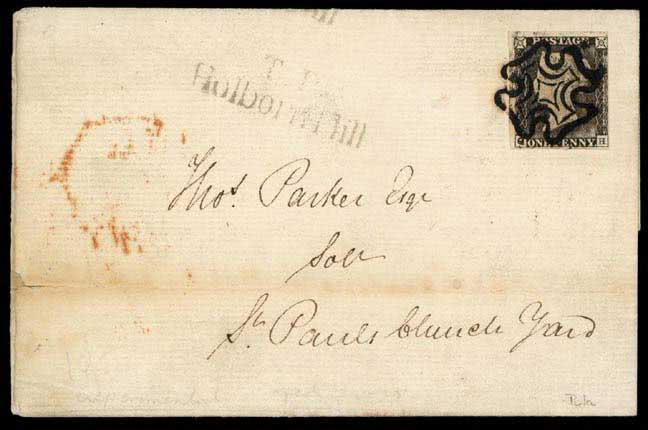 T. P.
Holborn Hill
POSTAGE
ONE PENNY
H
Thos. Parker Esqr
Solr
St. Pauls Church Yard